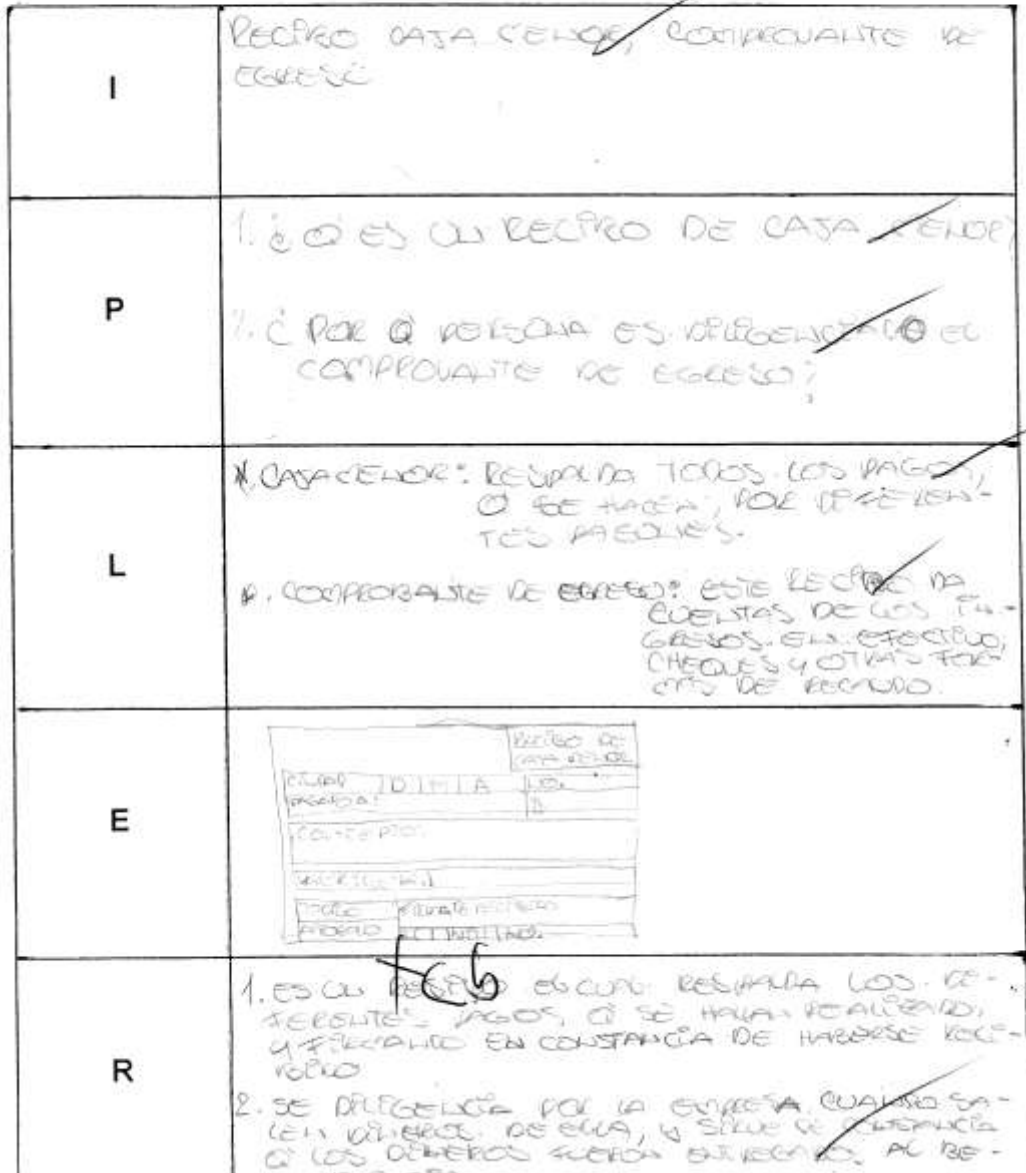 I
RECIRO CAJA CENOR, COMPROVANTE DE
EGRESO
P
1. ¿Q ES UN RECIRO DE CAJA CENOR?
2. ¿POR Q PERSONA ES DILIGENCIADO EL
COMPROVANTE DE EGRESO?
L
CAJA CENOR: RESPALDA TODOS LOS PAGOS,
Q SE HACEN, POR DIFEREN-
TES
COMPROBANTE DE EGRESO: ESTE RECIBO DA
CUENTAS DE LOS IN-
GRESOS. EN EFECTIVO,
CHEQUES Y OTRAS FOR-
MAS DE RECAUDO.
E
RECIBO DE
CAJA MENOR
CIUDAD D M A NO.
PAGADO A: $
CONCEPTO:
CODIGO FIRMA DE RECIBIDO
APROBADO
R
1. ES UN EL CUAL RESPALDA LOS DI-
FERENTES PAGOS, Q SE HALLAN REALIZADO,
Y FIRMANDO EN CONSTANCIA DE HABERSE RECI-
2. SE DILIGENCIA POR LA EMPRESA CUANDO SA-
LEN DINEROS DE ELLA, Y SIRVE DE CONSTANCIA
Q LOS DINEROS FUERON ENTREGADOS AL BE-